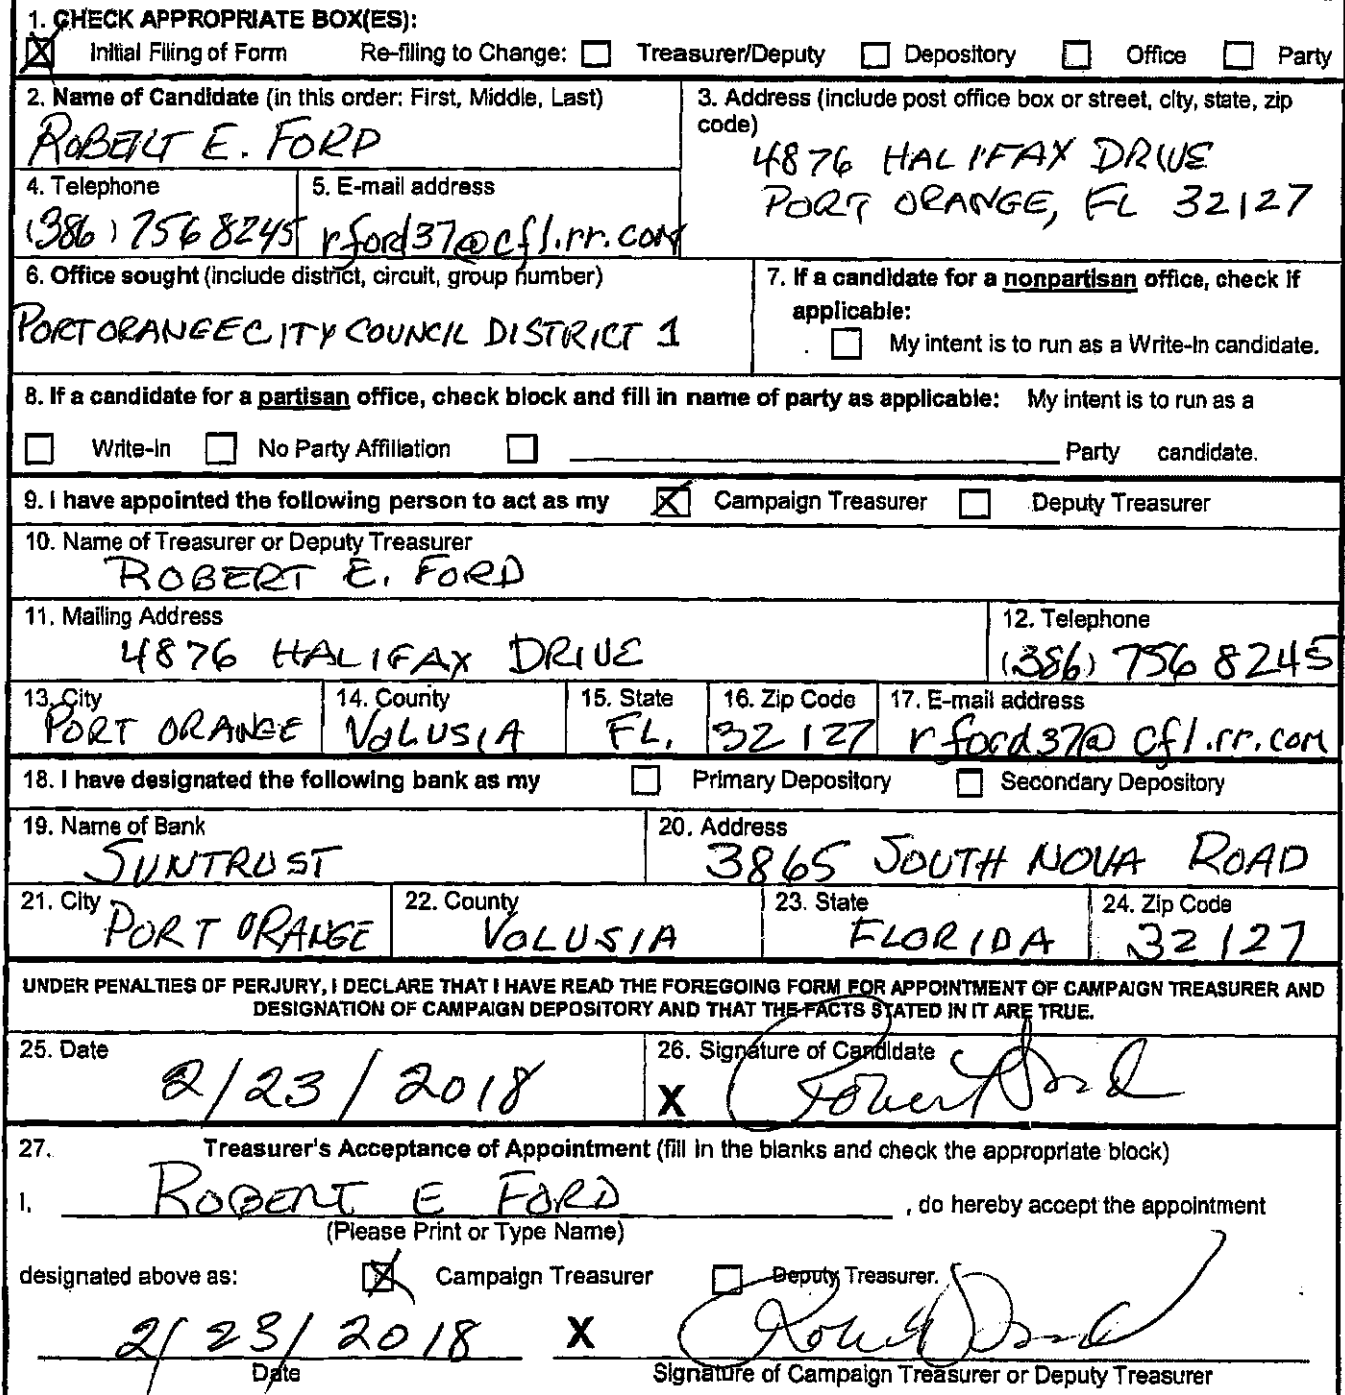 1. CHECK APPROPRIATE BOX(ES):
Initial Filing of Form Re-filing to Change: Treasurer/Deputy Depository Office Party
2. Name of Candidate (in this order: First, Middle, Last)
ROBERT E. FORD
3. Address (include post office box or street, city, state, zip
code)
4876 HALIFAX DRIVE
PORT ORANGE, FL 32127
4. Telephone
(386) 756 8245
5. E-mail address
rford37@cfl.rr.com
6. Office sought (include district, circuit, group number)
PORT ORANGE CITY COUNCIL DISTRICT 1
7. If a candidate for a nonpartisan office, check if
applicable:
My intent is to run as a Write-In candidate.
8. If a candidate for a partisan office, check block and fill in name of party as applicable: My intent is to run as a
Write-In No Party Affiliation Party candidate.
9. I have appointed the following person to act as my Campaign Treasurer Deputy Treasurer
10. Name of Treasurer or Deputy Treasurer
ROBERT E. FORD
11. Mailing Address
4876 HALIFAX DRIVE
12. Telephone
(386) 756 8245
13. City
PORT ORANGE
14. County
VOLUSIA
15. State
FL.
16. Zip Code
32127
17. E-mail address
rford37@cfl.rr.com
18. I have designated the following bank as my Primary Depository Secondary Depository
19. Name of Bank
SUNTRUST
20. Address
3865 SOUTH NOVA ROAD
21. City
PORT ORANGE
22. County
VOLUSIA
23. State
FLORIDA
24. Zip Code
32127
UNDER PENALTIES OF PERJURY, I DECLARE THAT I HAVE READ THE FOREGOING FORM FOR APPOINTMENT OF CAMPAIGN TREASURER AND
DESIGNATION OF CAMPAIGN DEPOSITORY AND THAT THE FACTS STATED IN IT ARE TRUE.
25. Date
2/23/2018
26. Signature of Candidate
X Robert Ford
27. Treasurer's Acceptance of Appointment (fill in the blanks and check the appropriate block)
I, ROBERT E FORD , do hereby accept the appointment
(Please Print or Type Name)
designated above as: Campaign Treasurer Deputy Treasurer.
2/23/2018 X Robert Ford
Date Signature of Campaign Treasurer or Deputy Treasurer